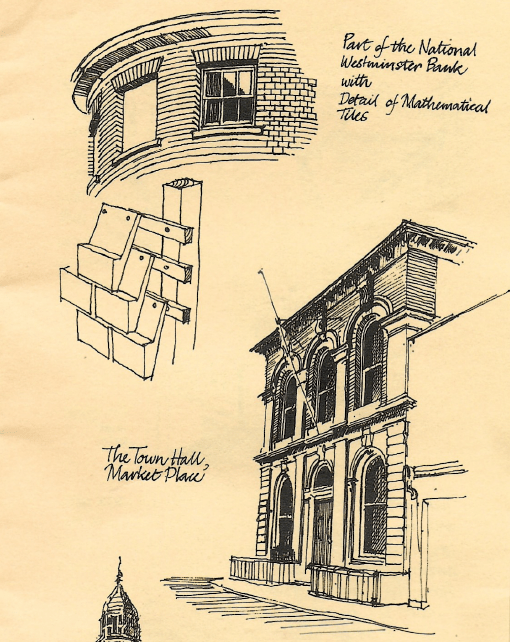 Part of the National
Westminster Bank
with
Detail of Mathematical
Tiles
The Town Hall,
Market Place